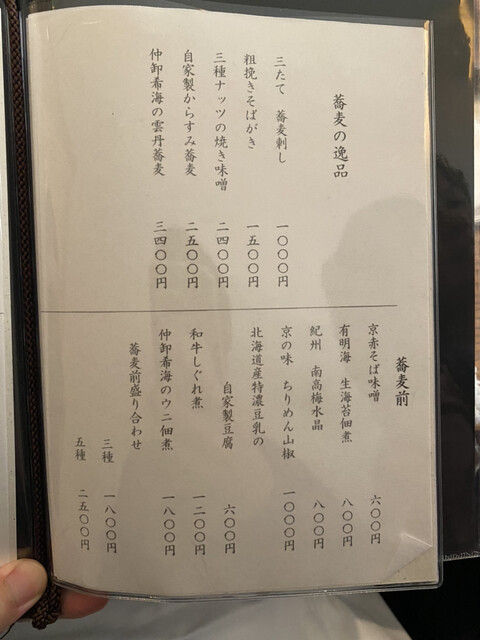 蕎麦の逸品
三たて 蕎麦刺し 一〇〇〇円
粗挽きそばがき 一五〇〇円
三種ナッツの焼き味噌 二四〇〇円
自家製からすみ蕎麦 二五〇〇円
仲卸希海の雲丹蕎麦 三四〇〇円
蕎麦前
京赤そば味噌 六〇〇円
有明海 生海苔佃煮 八〇〇円
紀州 南高梅水晶 八〇〇円
京の味 ちりめん山椒 一〇〇〇円
北海道産特濃豆乳の
自家製豆腐 六〇〇円
和牛しぐれ煮 一二〇〇円
仲卸希海のウニ佃煮 一八〇〇円
蕎麦前盛り合わせ
三種 一八〇〇円
五種 二五〇〇円